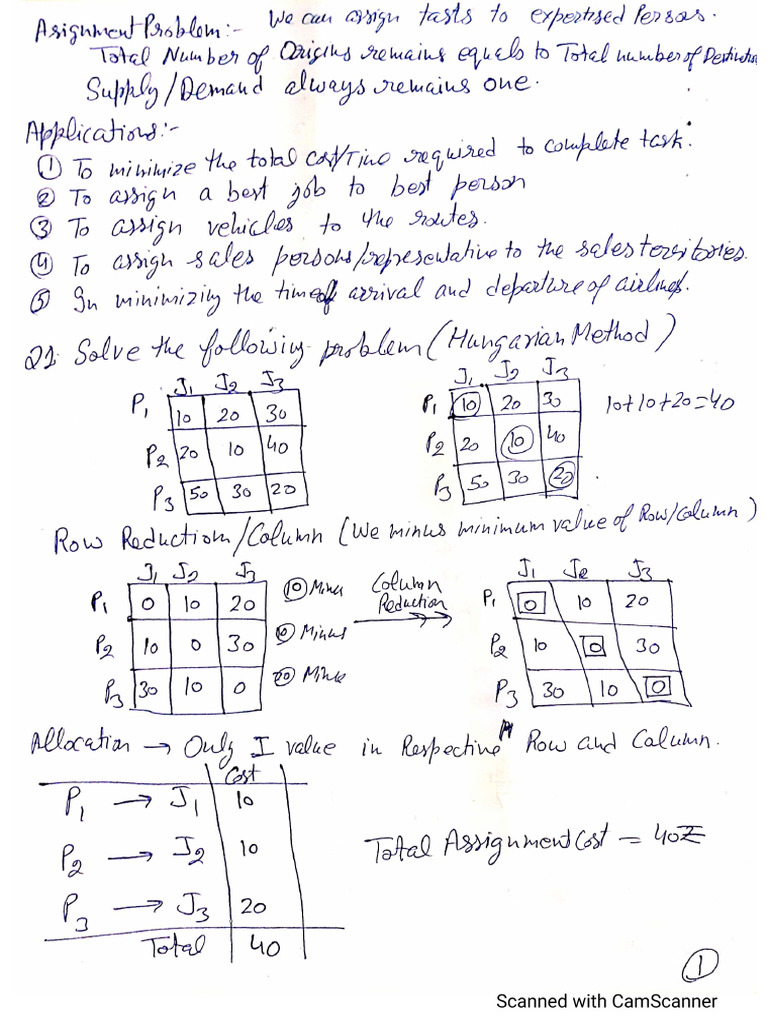 Asignment Problem:- We can assign tasts to expertised Persons.
Total Number of Origins remains equals to Total number of Destination
Supply/Demand always remains one.
Applications:-
① To minimize the total cost/Time required to complete task.
② To assign a best job to best person
③ To assign vehicles to the routes.
④ To assign sales persons/representative to the sales territories.
⑤ In minimizing the time of arrival and departure of airlines.
Q1 Solve the following problem (Hungarian Method)
J1 J2 J3 J1 J2 J3
P1 10 20 30 P1 10 20 30 10+10+20=40
P2 20 10 40 P2 20 10 40
P3 50 30 20 P3 50 30 20
Row Reduction/Column (We minus minimum value of Row/Column)
J1 J2 J3 J1 J2 J3
P1 0 10 20 10 Minus Column Reduction P1 0 10 20
P2 10 0 30 10 Minus P2 10 0 30
P3 30 10 0 20 Minus P3 30 10 0
Allocation → Only I value in Respective Row and Column.
Cost
P1 → J1 10
P2 → J2 10 Total Assignment Cost = 40
P3 → J3 20
Total 40
①
Scanned with CamScanner